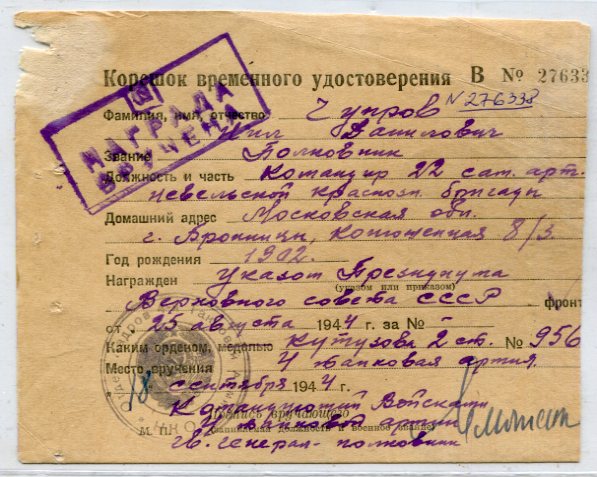 Корешок временного удостоверения В № 27633
НАГРАДА
ВРУЧЕНА
Фамилия, имя, отчество Чупров N 276338
Нил Данилович
Звание Полковник
Должность и часть Командир 22 сам. арт.
Невельской Краснозн. бригады
Домашний адрес Московская обл.
г. Бронницы, 8/3.
Год рождения 1902.
Награжден Указом Президиума
(указом или приказом)
Верховного совета СССР фронт
от 25 августа 1944 г. за №
Каким орденом, медалью Кутузова 2 ст. № 956
Место вручения 4 танковая армия.
18 сентября 1944 г.
Командующий Войсками
Подпись вручающего
4 танковой армии
М. П. (занимаемая должность и военное звание)
генерал-полковник